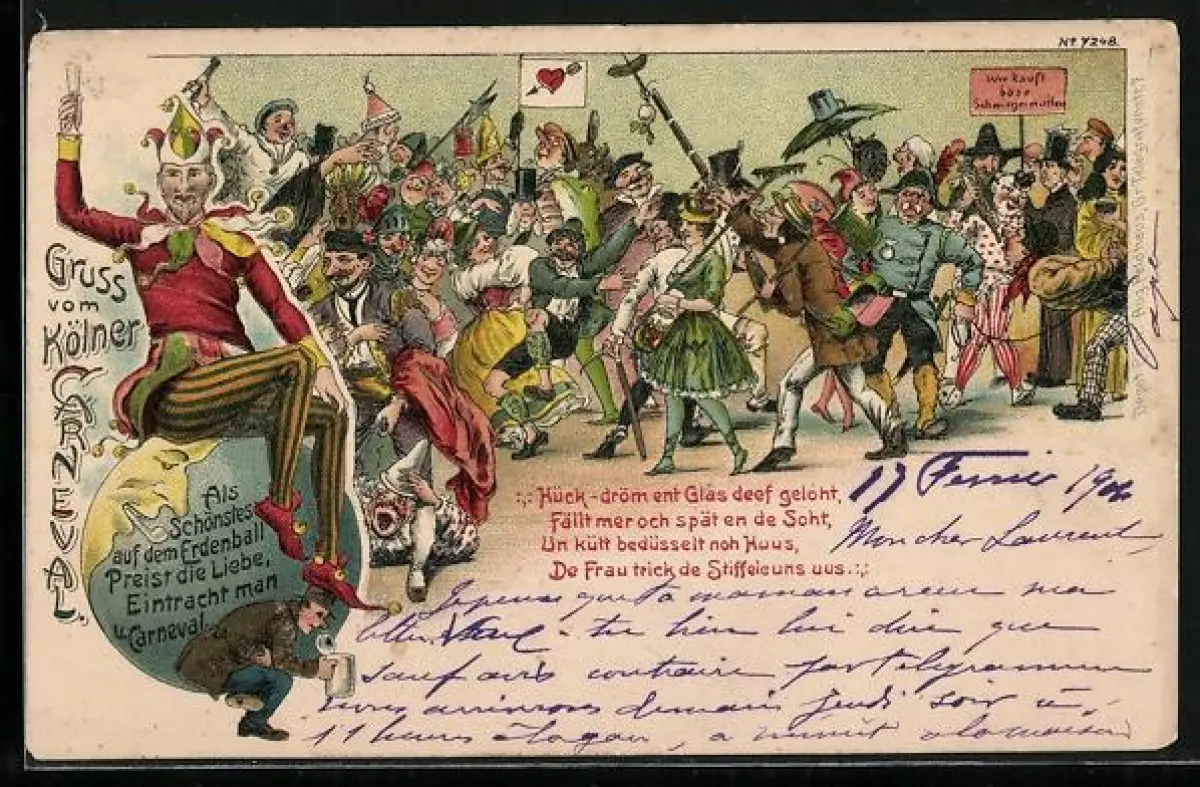 No. 7248.
Wer kauft
böse
Schwiegermütter
Gruss
vom
Kölner
CARNEVAL.
Als
Schönstes
auf dem Erdenball
Preist die Liebe,
Eintracht man
u. Carneval.
:,: Kück-dröm ent Glas deef geloht,
Fällt mer och spät en de Soht,
Un kütt bedüsselt noh Huus,
De Frau trick de Stiffele uns uus. :,:
17 Fevrier
Mon cher Laurent,
Je pense que ta maman a reçu ma
lettre - tu bien lui dire que
sauf avis contraire par télégramme
nous arriverons demain jeudi soir à
11 heures à la gare, à minuit à la maison